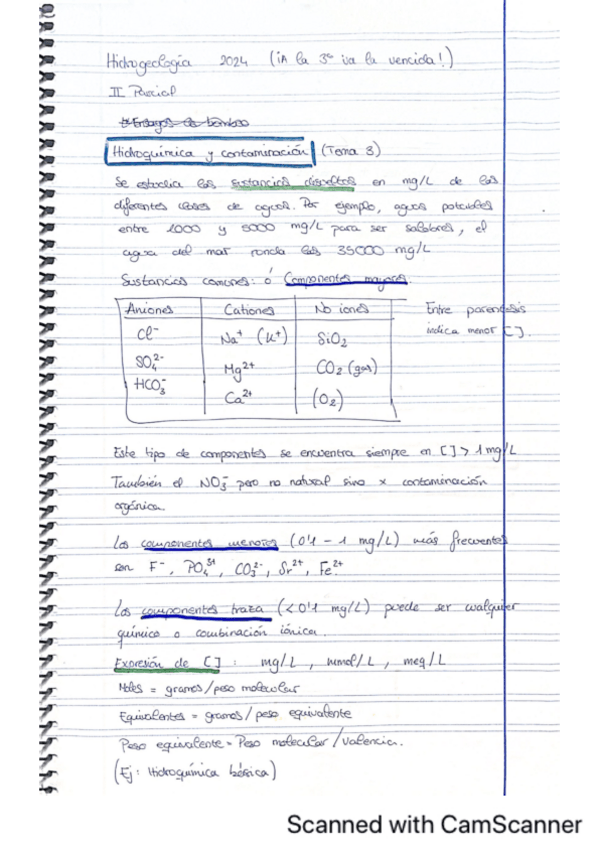 Hidrogeología 2024 (¡A la 3ª va la vencida!)
II Parcial
Hidroquímica y contaminación (Tema 8)
Se estudia las sustancias disueltas en mg/L de las
diferentes clases de aguas. Por ejemplo, aguas potables
entre 1000 y 5000 mg/L para ser salobres, el
agua del mar ronda las 35000 mg/L
Sustancias comunes: ó Componentes mayores
Aniones Cationes No iones
Entre paréntesis
indica menor [ ].
Cl⁻ Na⁺ (K⁺) SiO₂
SO₄²⁻ Mg²⁺ CO₂ (gas)
HCO₃⁻ Ca²⁺ (O₂)
Este tipo de componentes se encuentra siempre en [ ] > 1 mg/L
También el NO₃⁻ pero no natural sino x contaminación
orgánica.
Los componentes menores (0'1 - 1 mg/L) más frecuentes
son F⁻, PO₄³⁻, CO₃²⁻, Sr²⁺, Fe²⁺
Los componentes traza (<0'1 mg/L) puede ser cualquier
químico o combinación iónica.
Expresión de [ ]: mg/L, mmol/L, meq/L
Moles = gramos/peso molecular
Equivalentes = gramos/peso equivalente
Peso equivalente = Peso molecular/valencia.
(Ej: Hidroquímica básica)
Scanned with CamScanner